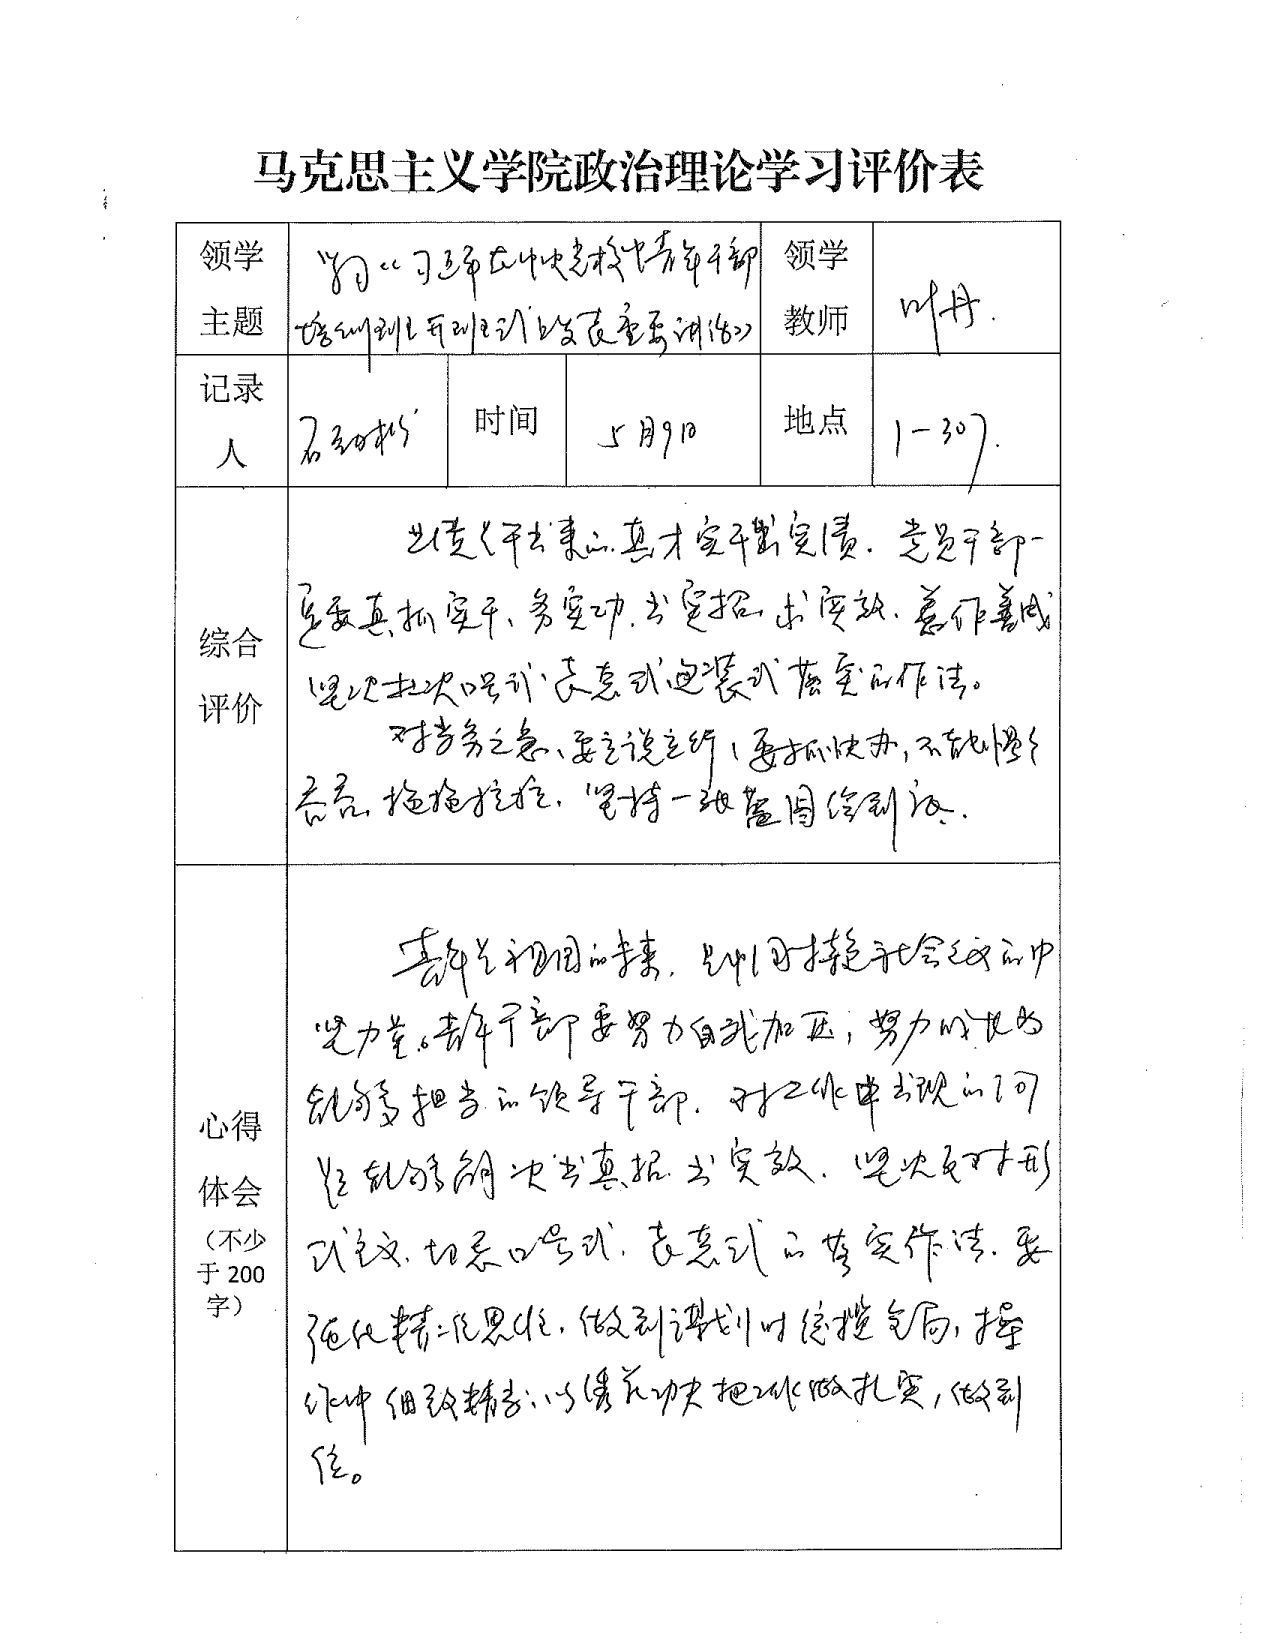 马克思主义学院政治理论学习评价表
领学主题
学习《习近平在中央党校中青年干部
培训班开班式上发表重要讲话》
领学教师
叶丹.
记录人
石
时间
5月9日
地点
1-307.
综合评价
业绩是干出来的.真才实干出实绩.党员干部一
定要真抓实干、务实功.出实招.求实效.善作善成
坚决杜决口号式、表态式包装式落实的作法。
对当务之急、要立说立行、要抓快办,不能慢慢
吞吞,拖拖拉拉.坚持一张蓝图绘到底.
心得体会
(不少于200字)
青年是祖国的未来.是中国特色社会主义的中
坚力量。青年干部要努力自我加压,努力成长为
能够担当的领导干部.对工作中出现的问
题能够解决出真招出实效.坚决反对形
式主义.切忌口号式.表态式的落实作法.要
强化精准思维,做到谋划时统揽全局,操
作中细致精当,以绣花功夫把工作做扎实,做到
位。